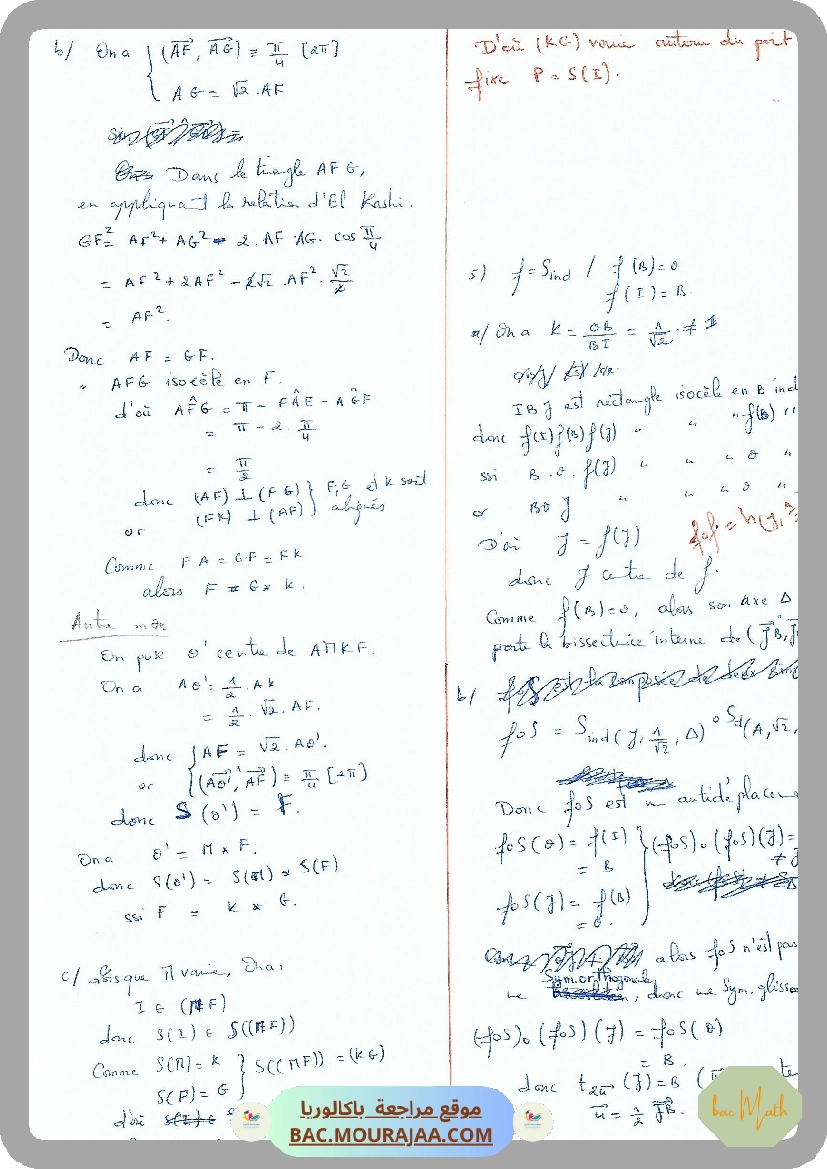 b/ On a { (AF, AG) ≡ π/4 [2π]
AG = √2 . AF
Dans le triangle AFG,
en appliquant la relation d'El Kashi.
GF² = AF² + AG² - 2 . AF . AG . cos π/4
= AF² + 2AF² - 2√2 . AF² . √2/2
= AF².
Donc AF = GF.
" AFG isocèle en F.
d'où AF̂G = π - FÂE - AĜF
= π - 2 . π/4
= π/2
donc (AF) ⊥ (FG) } F, G et K sont
or (FK) ⊥ (AF) } alignés
Comme FA = GF = FK
alors F = G * K.
Autre
On pose O' centre de AMKF.
On a AO' = 1/2 . AK
= 1/2 . √2 . AF.
donc { AF = √2 . AO'
or { (AO', AF) ≡ π/4 [2π]
donc S(O') = F.
On a O' = M * F.
donc S(O') = S(M) * S(F)
ssi F = K * G.
c/ Lorsque M varie, On a :
I ∈ (MF)
donc S(I) ∈ S((MF))
Comme S(M) = K } S((MF)) = (KG)
S(F) = G
d'où
D'où (KG) varie autour du point
fixe P = S(I).
5) f = S ind / f(B) = O
f(I) = B.
a/ On a K = OB/BI = 1/√2 ≠ 1
IBJ est rectangle isocèle en B ind
donc f(I)f(B)f(J) " " " f(B) "
ssi B O f(J) " " " O "
or BOJ " " " O "
D'où J = f(J)
fof = h(J,
donc J centre de f.
Comme f(B) = O, alors son axe Δ
porte la bissectrice interne de (JB, J
b/
foS = S ind (J, 1/√2, Δ) o S d (A, √2,
Donc foS est un antidéplaceme
foS(O) = f(I) } (foS)o(foS)(J) =
= B
≠ J
foS(J) = f(B)
= O.
alors foS n'est pas
Sym. orthogonale
ne , donc une Sym. glisse
(foS)o(foS)(J) = foS(O)
= B.
donc t 2u (J) = B
u = 1/2 JB.
موقع مراجعة باكالوريا
BAC.MOURAJAA.COM
bac Math